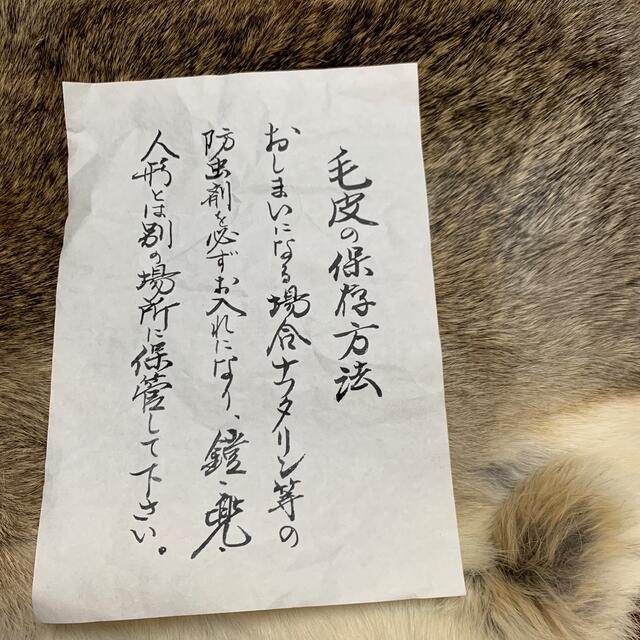 毛皮の保存方法
おしまいになる場合ナフタリン等の
防虫剤を必ずお入れになり、鎧、兜、
人形とは別の場所に保管して下さい。